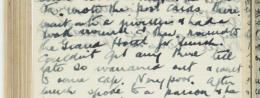 wrote the post cards, there
went into a
walk around & then round to
the Grand Hotel for lunch.
Couldn't get any there till
late so wandered out & went
to some cafe. Very poor. After
lunch spoke to a parson & he